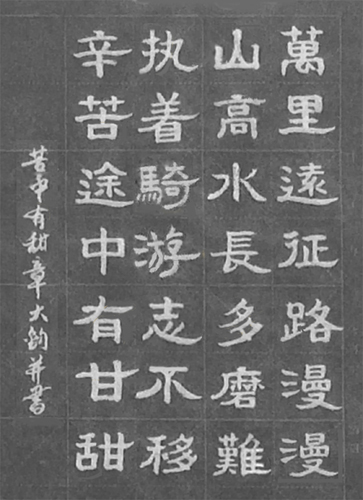 萬里遠征路漫漫
山高水長多磨難
执着騎游志不移
辛苦途中有甘甜
苦中有甜章大鈞并書